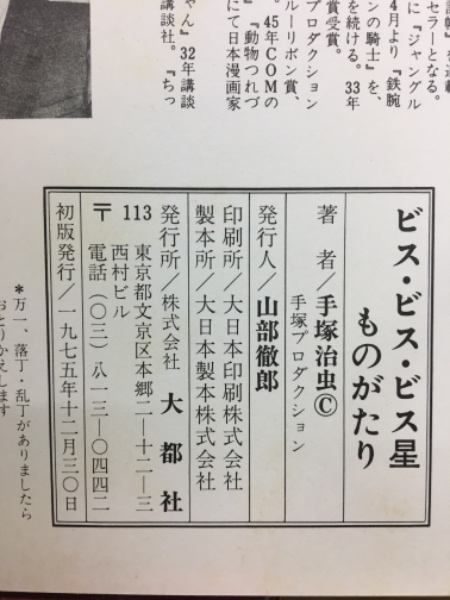 セラーとなる。
に『ジャングル
4月より『鉄腕
ンの騎士』を、
を続ける。33年
賞受賞。
プロダクション
ルーリボン賞、
。45年COMの
』『動物つれづ
にて日本漫画家
ゃん』32年講談
講談社。『ちっ
ビス・ビス・ビス星
ものがたり
著者/手塚治虫Ⓒ
手塚プロダクション
発行人/山部徹郎
印刷所/大日本印刷株式会社
製本所/大日本製本株式会社
発行所/株式会社 大都社
113 東京都文京区本郷二―十二―三
西村ビル
〒 電話(〇三)八一三―〇四四二
初版発行/一九七五年十二月三〇日
*万一、落丁・乱丁がありましたら
おとりかえします